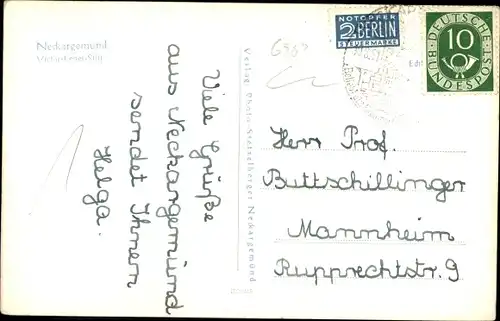 Neckargemünd
NOTOPFER
2 BERLIN
STEUERMARKE
DEUTSCHE
BUNDESPOST
10
Viele Grüße
aus Neckargemünd
sendet Ihnen
Helga.
Verlag Photo Stetzelberger Neckargemünd
Herr Prof.
Buttschillinger
Mannheim
Rupprechtstr. 9